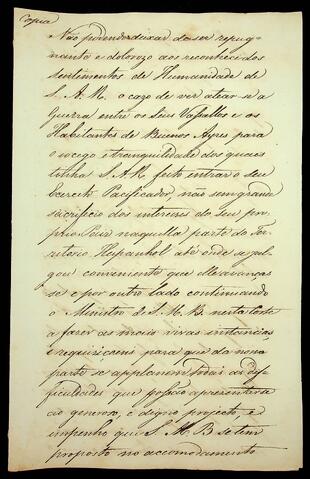 Copia
Não podendo deixar de ser repug-
nante e dolorozo aos reconhecidos
sentimentos de Humanidade de
S. A. R. o cazo de ver atear-se a
Guerra entre os Seus Vassallos e os
Habitantes de Buenos Ayres para
o socego e tranquilidade dos quaes
tinha S. A. R. feito entrar o seu
Exercito Pacificador, não sem grande
sacrificio dos interesses do seu pro-
prio Paiz naquella parte do Ter-
ritorio Hespanhol até onde se jul-
gou conveniente que elle avanças-
se e por outro lado continuando
o Ministro de S. M. B. nesta Corte
a fazer as mais vivas instancias
e requisicoens para que da nossa
parte se applanem todas as dif-
ficuldades que possão aprezentar-se
ao generozo, e digno projecto, e
impenho que S. M. B. se tem
proposto no accomodamento